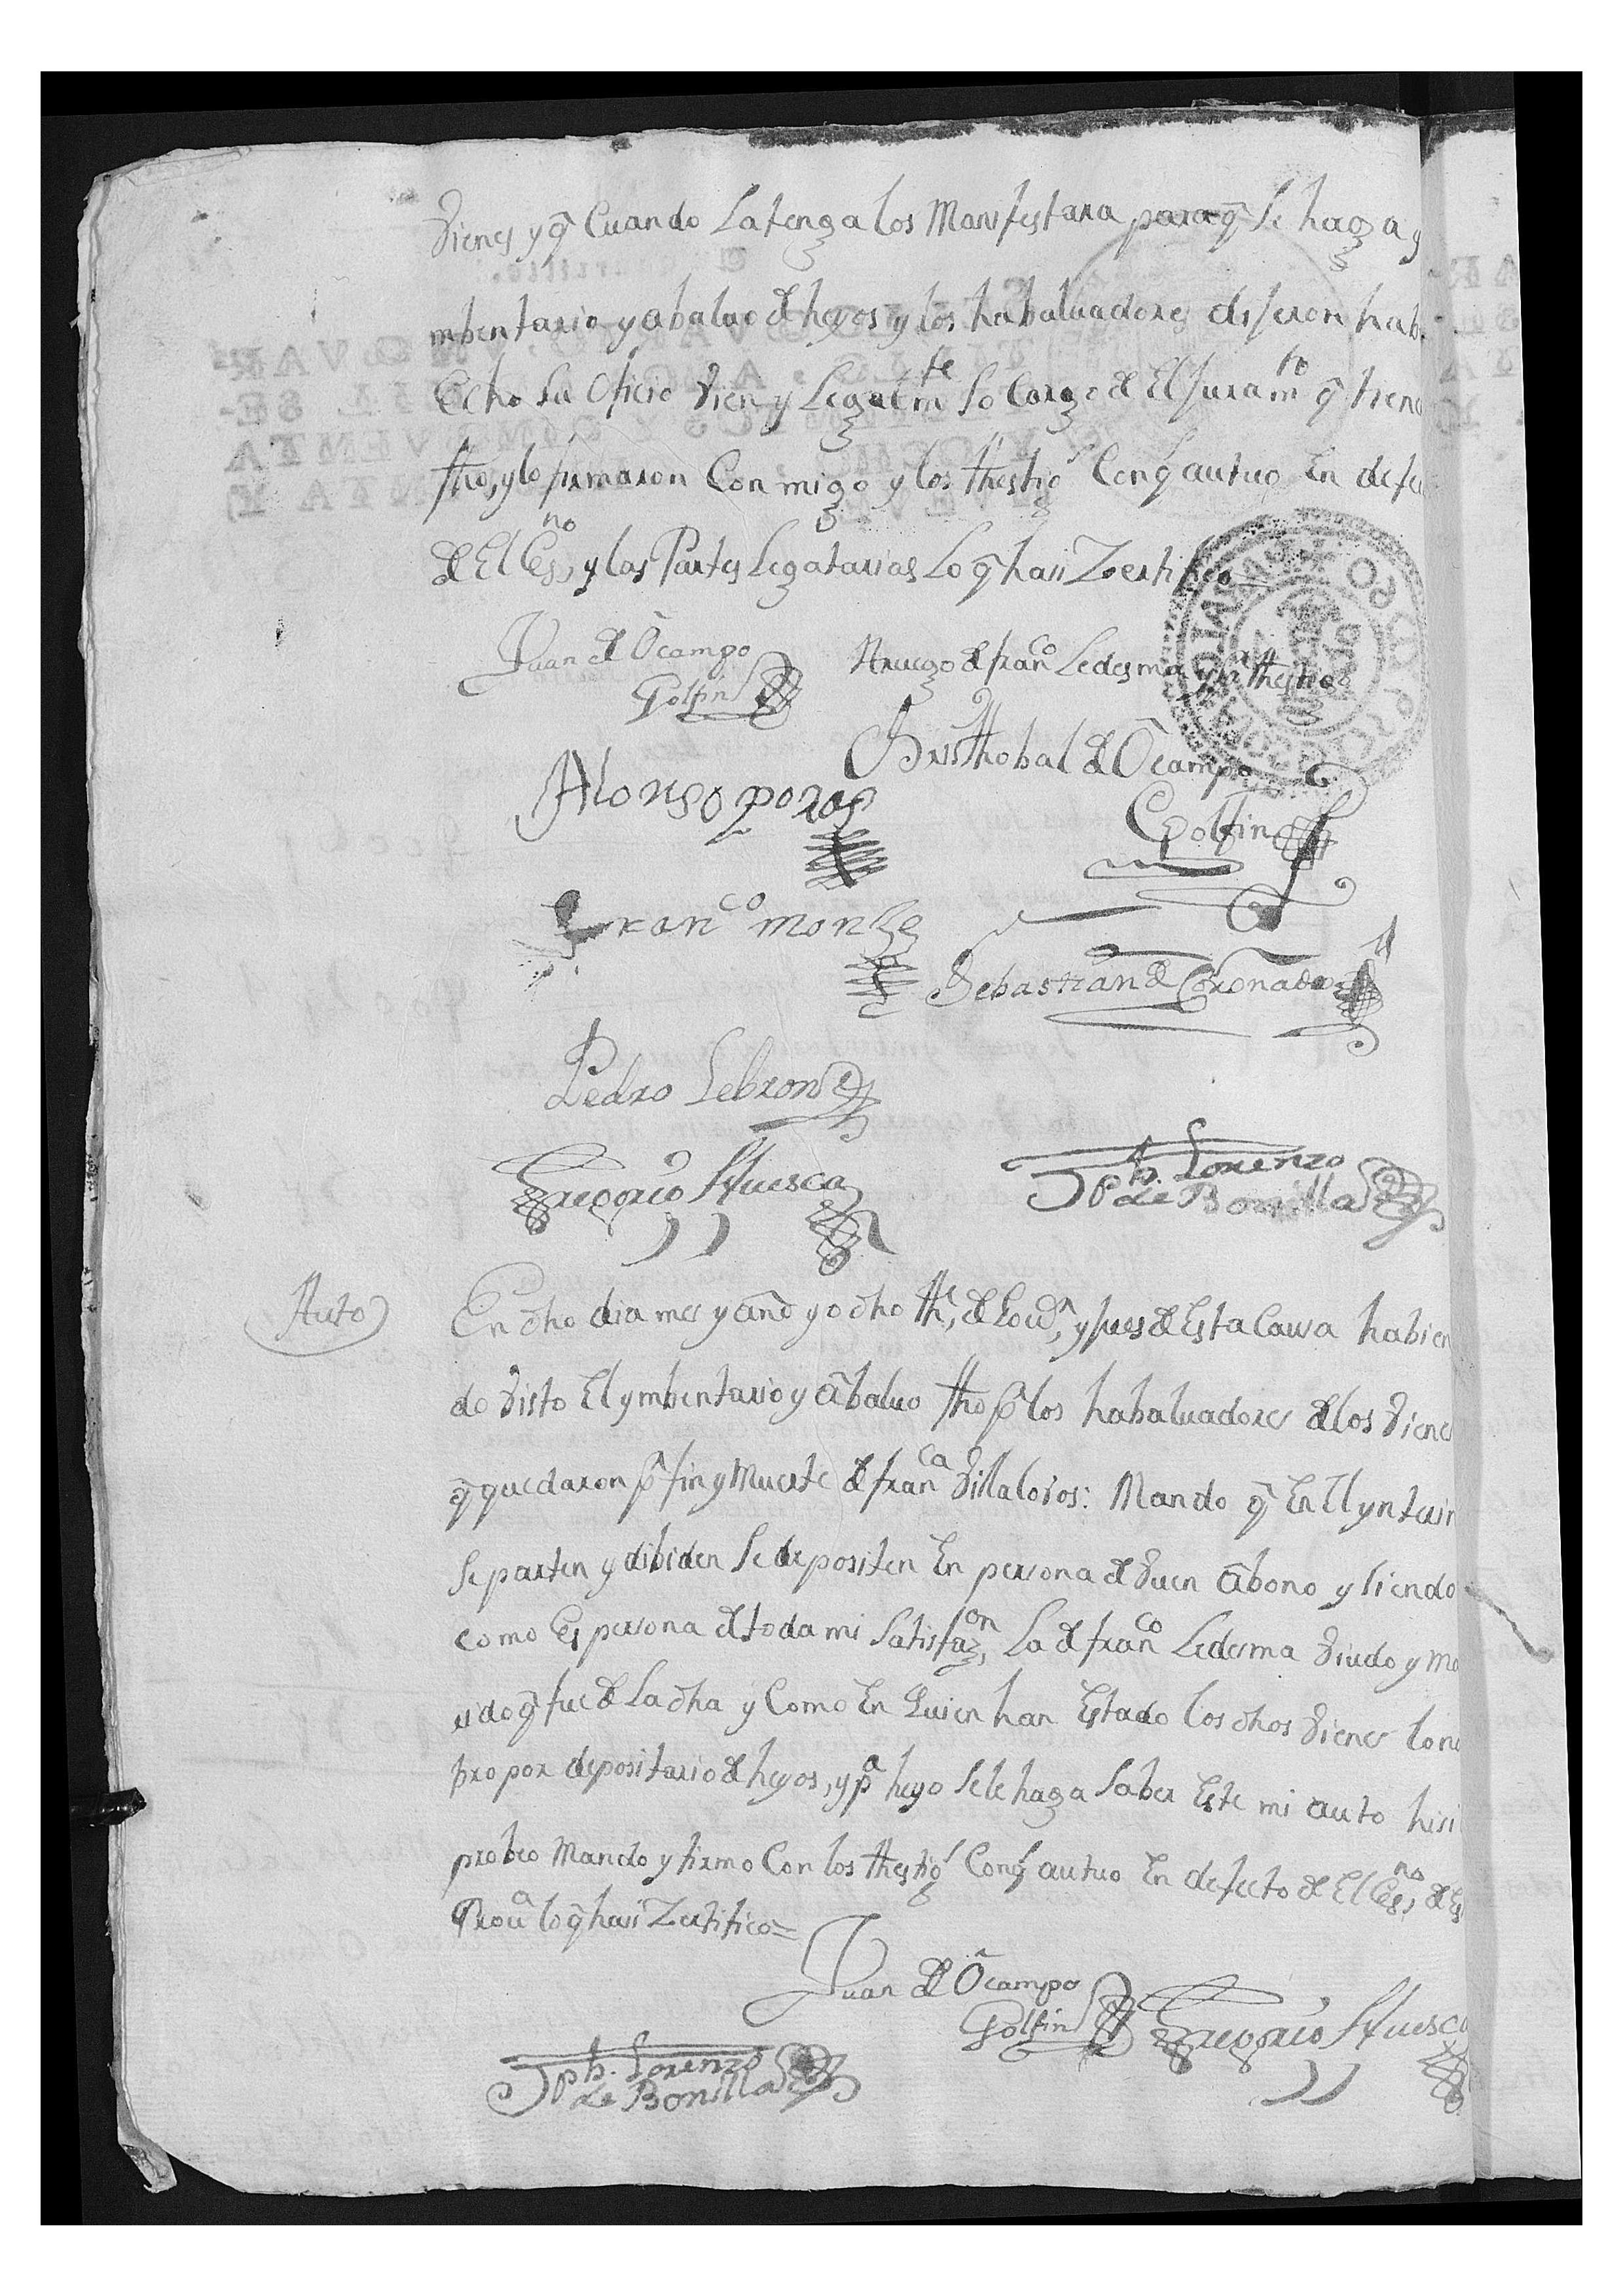 Vienes y q̃ Cuando La tenga los Manifestara para q̃ Se haga y
mbentario y abaluo de heyos y los habaluadores diseron hab
Echo Su Oficio Vien y Legalmte So Cargo de El Juramto q̃ tiene
ftho, y lo firmaron Con migo y los thestigs Con q̃ autuo En defec
de El Essno, y las Partes Legatarias Lo q̃ hasi Zertifico
Juan de Ocampo
Golfin
Arruego de franco Ledesma y pr thestigo
Christhobal de Ocampo
Golfin
Alonso poras
Franco monte
Sebastian de Coronado
Pedro Lebron
Gregorio Huesca
Jph. Lorenzo
de Bonilla
Auto
En dho dia mes y año yo dho the, de Govor, y Jues de Esta Causa habien
do Visto El ymbentario y abaluo ftho pr los habaluadores de los Viene
q̃ quedaron pr fin y Muerte de franca Villalobos: Mando q̃ En El ynterin
Se parten y dibiden Se depositen En persona de Buen abono y Siendo
como Es persona de toda mi Satisfazon, La de franco Ledesma Viudo y Ma
rido q̃ fue de La dha y Como En Quien han Estado los dhos Vienes lo no
bro por depositario de heyos, y pa heyo Se le haga Saber Este mi auto hasi
probeo Mando y firmo Con los thestigs Con q̃ autuo En defecto de El Essno, de Es
Prova lo q̃ hasi Zertifico=
Juan de Ocampo
Golfin
Gregorio Huesca
Jph. Lorenzo
de Bonilla